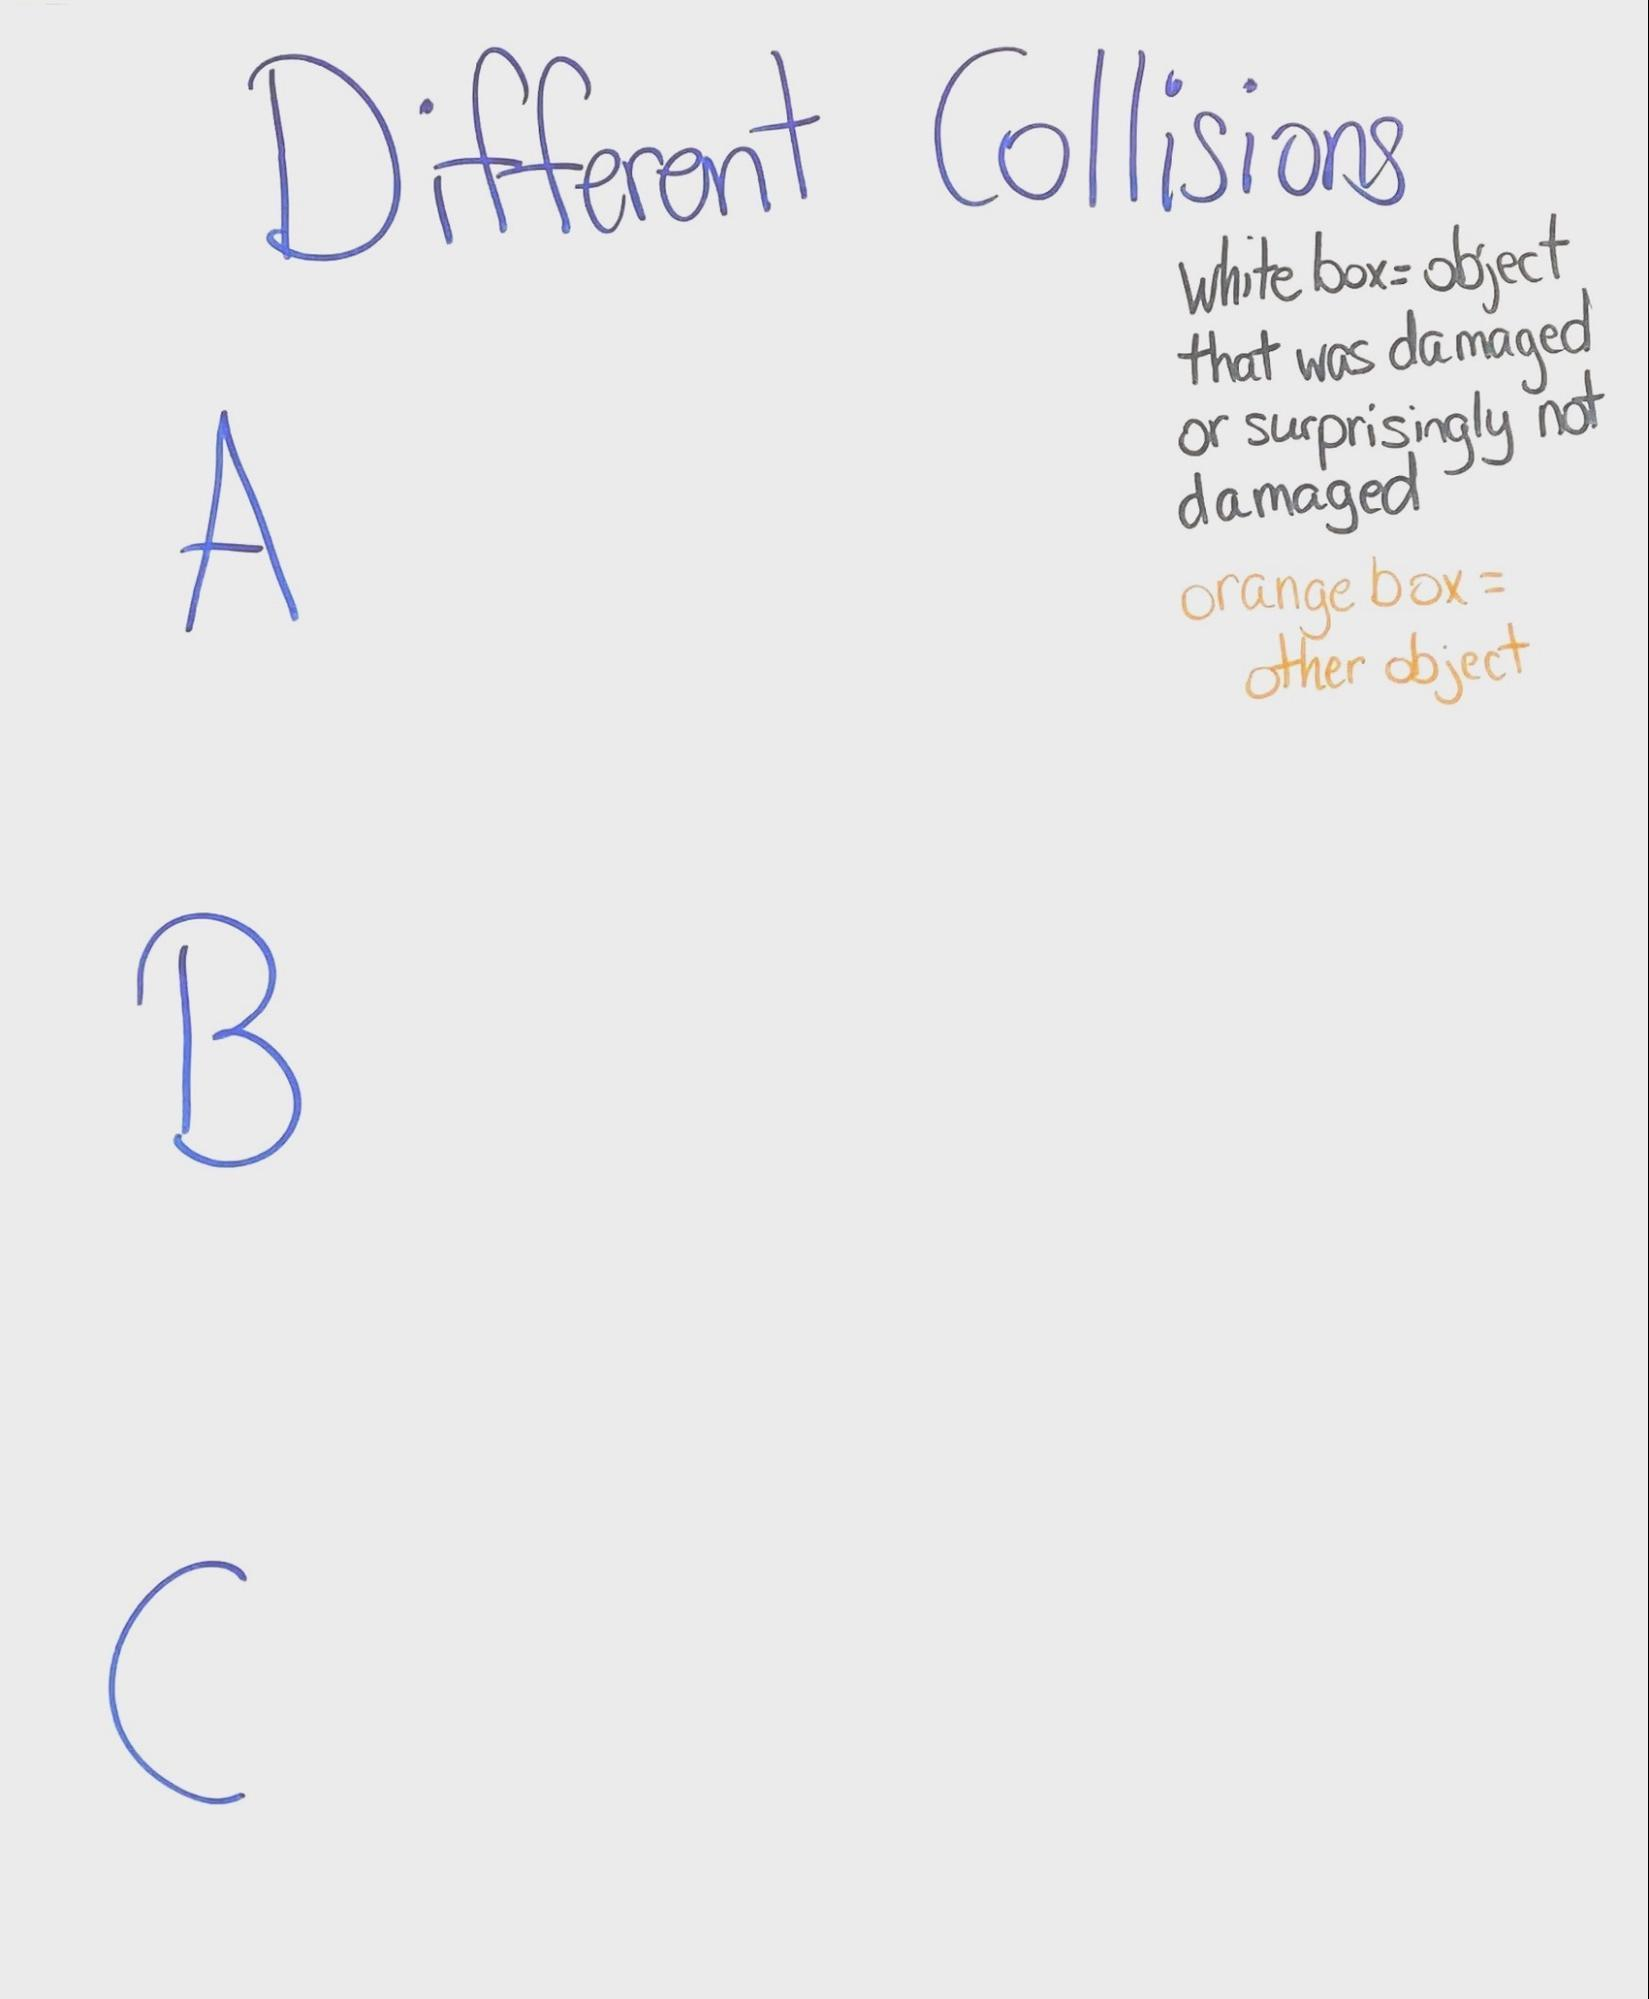 Different Collisions
white box = object
that was damaged
or surprisingly not
damaged
orange box =
other object
A
B
C